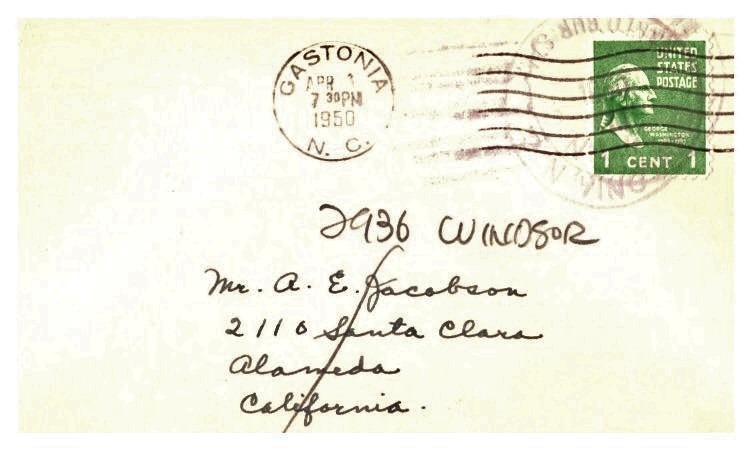 GASTONIA
APR 1
7 30 PM
1950
N. C.
UNITED
STATES
POSTAGE
GEORGE
WASHINGTON
1 CENT 1
2936 WINDSOR
Mr. A. E. Jacobson
2110 Santa Clara
Alameda
California.